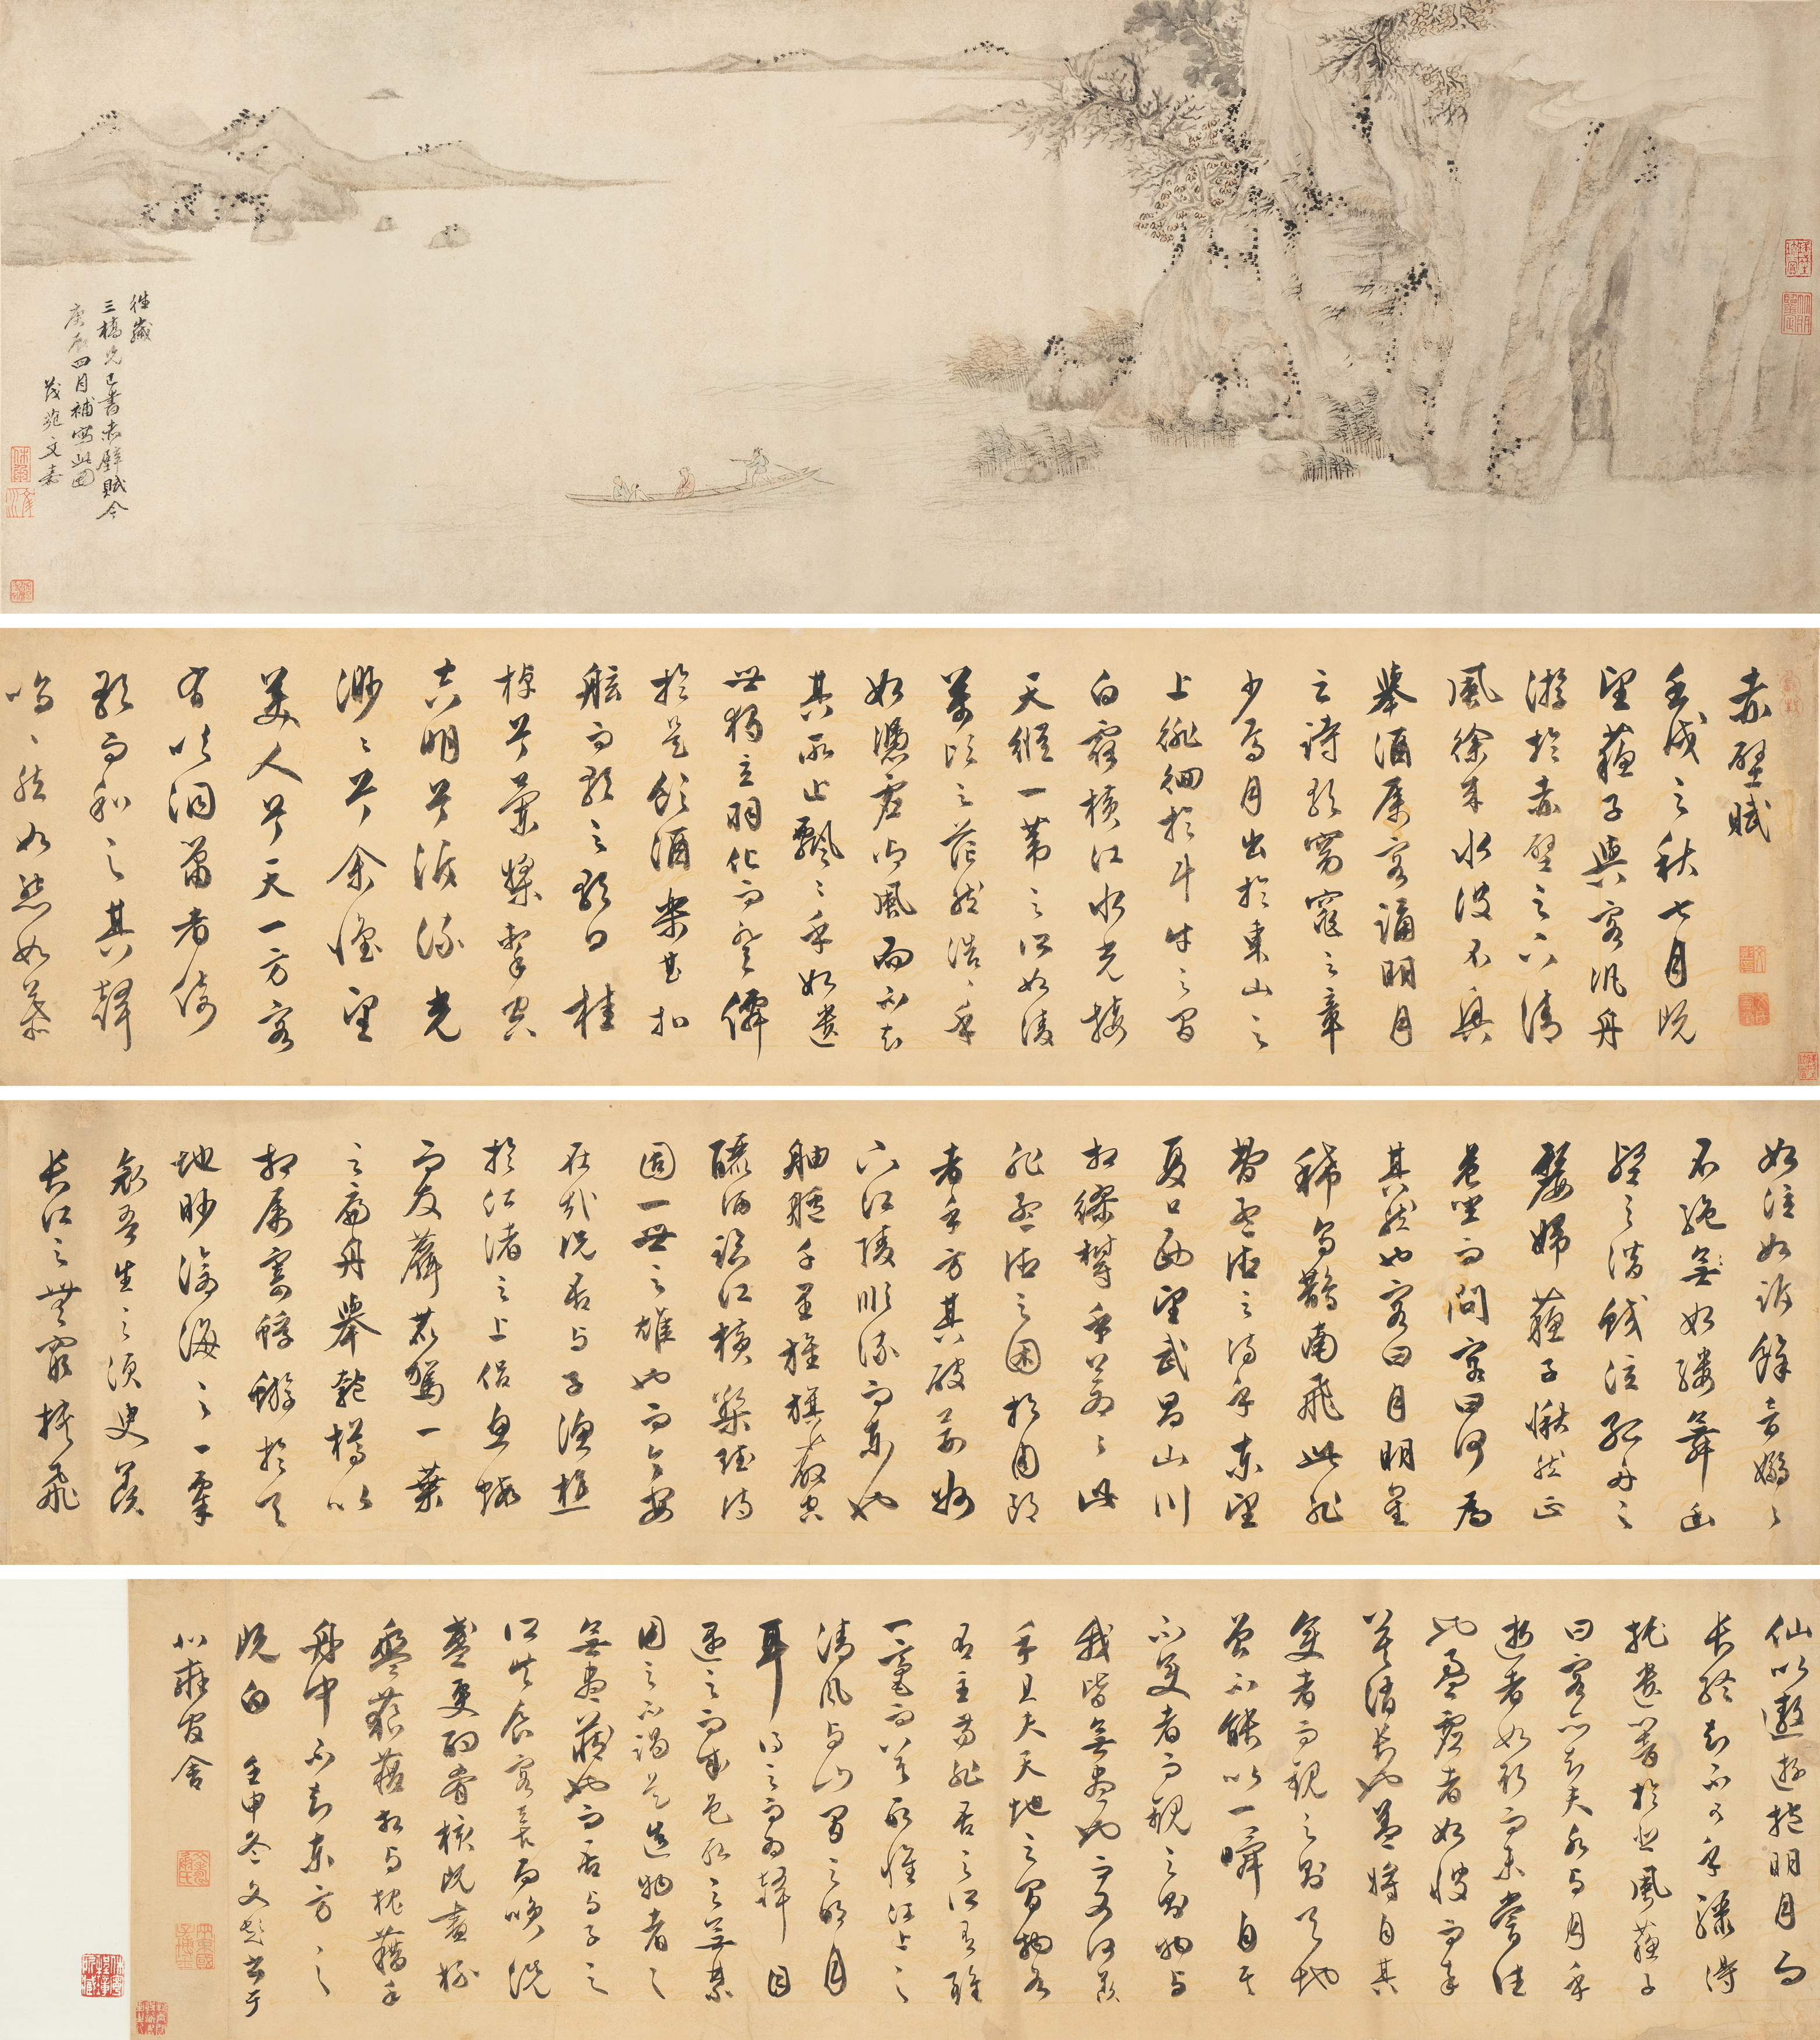 往歲
三橋兄已書赤壁賦今
庚辰四月補寫此圖
茂苑文嘉
赤壁賦
壬戌之秋七月既
望蘇子與客汎舟
游於赤壁之下清
風徐來水波不興
舉酒屬客誦明月
之詩歌窈窕之章
少焉月出於東山之
上徘徊於斗牛之間
白露橫江水光接
天縱一葦之所如凌
萬頃之茫然浩浩乎
如憑虛御風而不知
其所止飄飄乎如遺
世獨立羽化而登僊
於是飲酒樂甚扣
舷而歌之歌曰桂
棹兮蘭槳擊空
明兮泝流光
渺渺兮余懷望
美人兮天一方客
有吹洞簫者倚
歌而和之其聲
嗚嗚然如怨如慕
如泣如訴餘音嫋嫋
不絕無如縷舞幽
壑之潛蛟泣孤舟之
嫠婦蘇子愀然正
危坐而問客曰何為
其然也客曰月明星
稀烏鵲南飛此非
曹孟德之詩乎東望
夏口西望武昌山川
相繆鬱乎蒼蒼此
非孟德之困於周郎
者乎方其破荊州
下江陵順流而東也
舳艫千里旌旗蔽空
釃酒臨江橫槊賦詩
固一世之雄也而今安
在哉況吾與子漁樵
於江渚之上侶魚蝦
而友麋鹿駕一葉
之扁舟舉匏樽以
相屬寄蜉蝣於天
地眇滄海之一粟
哀吾生之須臾羨
長江之無窮挾飛
仙以遨遊抱明月而
長終知不可乎驟得
托遺響於悲風蘇子
曰客亦知夫水與月乎
逝者如斯而未嘗往
也盈虛者如彼而卒
莫消長也蓋將自其
變者而觀之則天地
曾不能以一瞬自其
不變者而觀之則物與
我皆無盡也而又何羨
乎且夫天地之間物各
有主苟非吾之所有雖
一毫而莫取惟江上之
清風與山間之明月
耳得之而為聲目
遇之而成色取之無禁
用之不竭是造物者之
無盡藏也而吾與子之
所共食客喜而笑洗
盞更酌肴核既盡杯
盤狼藉相與枕藉乎
舟中不知東方之
既白 壬申冬文彭書于
北雍官舍